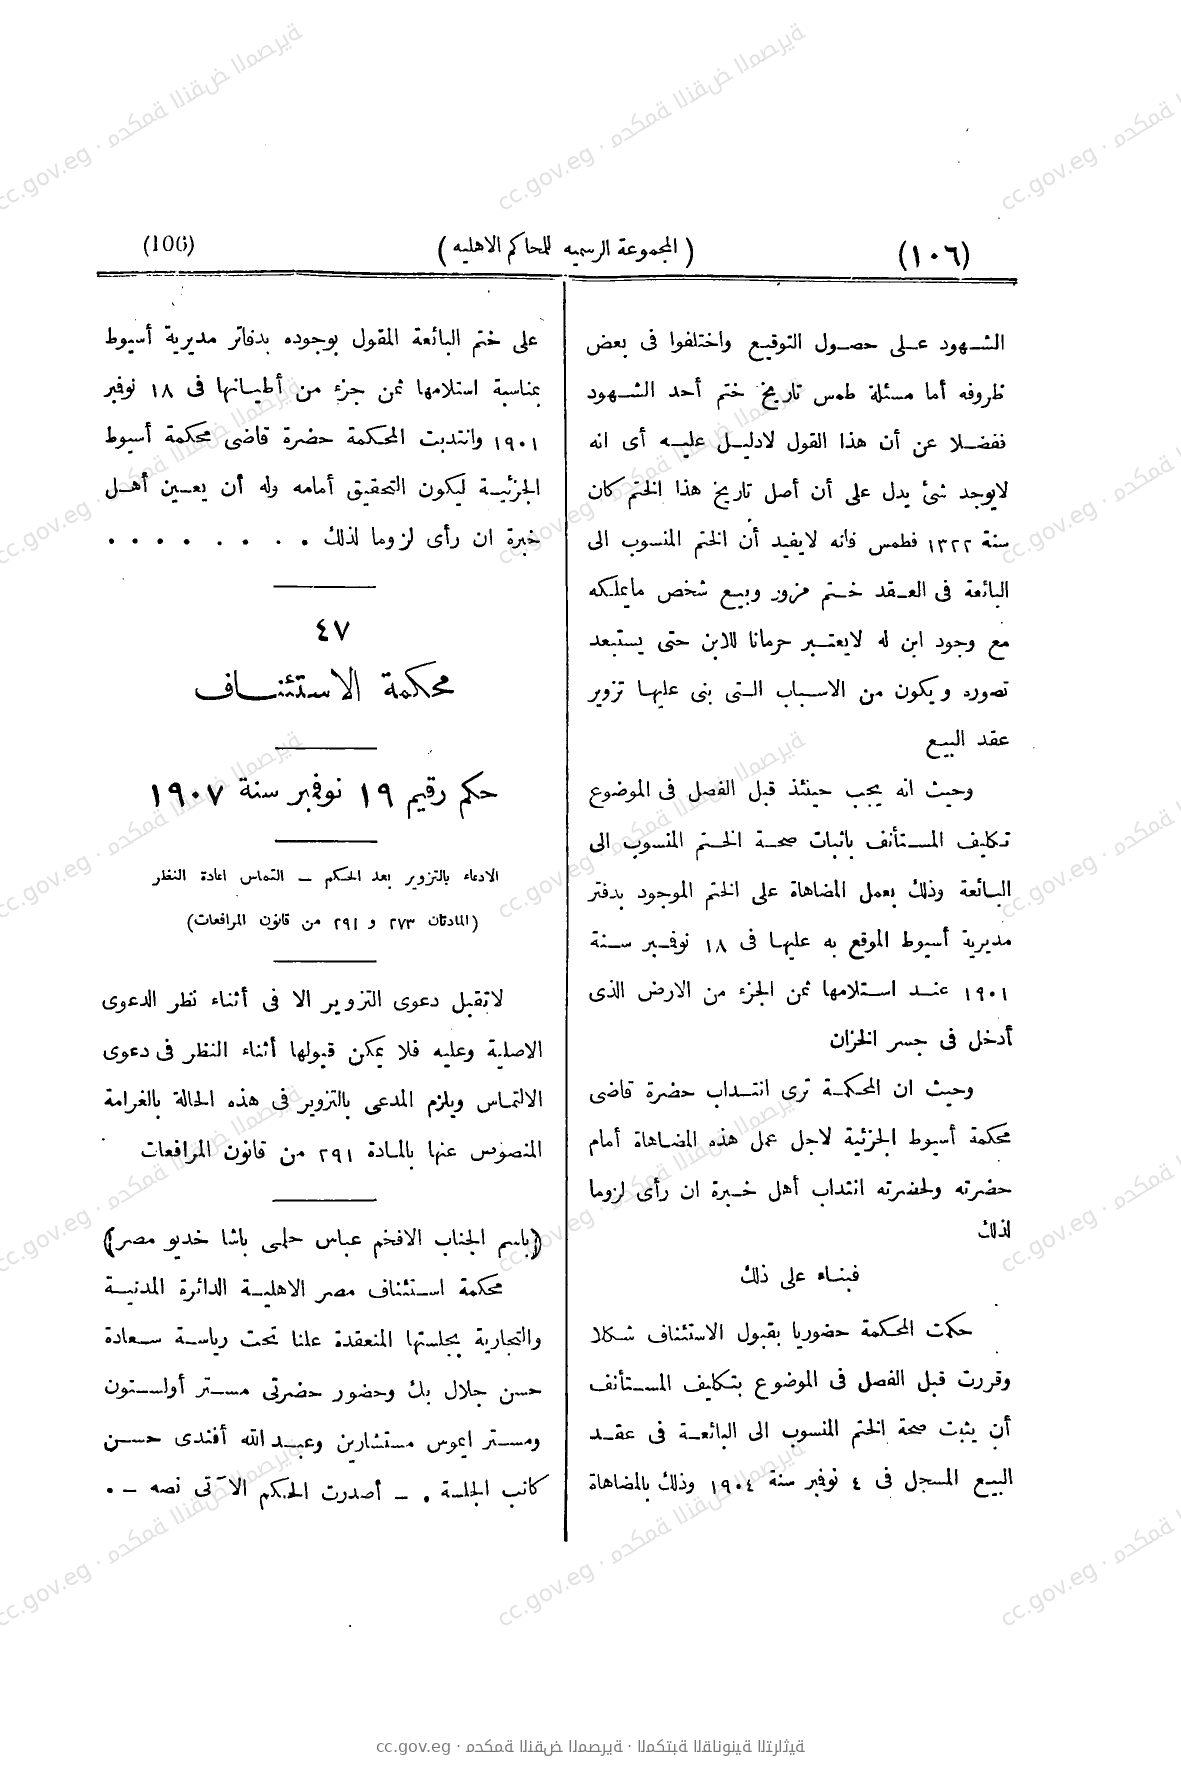 (١٠٦)
( المجموعة الرسميه للمحاكم الاهليه )
(106)
الشـهود عـلى حصـول التوقيـع واختلفوا فى بعض
ظروفه أما مسئلة طمس تاريخ ختم أحد الشـهود
ففضـلا عن أن هذا القول لادليـل عليـه أى انه
لايوجد شئ يدل على أن أصل تاريخ هذا الختم كان
سنة ١٣٢٢ فطمس فانه لايفيد أن الختم المنسوب الى
البائعة فى العـقد خـتم مزور وبيـع شخص مايملكه
مع وجود ابن له لايعتـبر حرمانا للابن حتى يستبعد
تصوره ويكون من الاسـباب الـتى بنى عليها تزوير
عقد البيع
وحيث انه يجب حينئذ قبل الفصل فى الموضوع
تكليف المسـتأنف باثبات صحـة الخـتم المنسوب الى
البـائعة وذلك بعمل المضاهاة على الختم الموجود بدفتر
مديرية أسيوط الموقع به عليهـا فى ١٨ نوفـبر سـنة
١٩٠١ عنـد اسـتلامها ثمن الجزء من الارض الذى
أدخل فى جسر الخزان
وحيث ان المحكمـة ترى انتـداب حضرة قاضى
محكمة أسيوط الجزئية لاجل عمل هذه المضـاهاة أمام
حضرته ولحضرته انتداب أهل خـبرة ان رأى لزوما
لذلك
فبنـاء على ذلك
حكمت المحكمة حضوريا بقبول الاستئناف شـكلا
وقررت قبل الفصل فى الموضوع بتكليف المسـتأنف
أن يثبت صحة الختم المنسوب الى البائعـة فى عقـد
البيع المسجل فى ٤ نوفبر سنة ١٩٠٤ وذلك بالمضاهاة
على ختم البائعة المقول بوجوده بدفاتر مديرية أسيوط
بمناسبة استلامها ثمن جزء من أطيـانها فى ١٨ نوفبر
١٩٠١ وانتدبت المحكمة حضرة قاضى محكمة أسيوط
الجزئيـة ليكون التحقيق أمامه وله أن يعـين أهـل
خبرة ان رأى لزوما لذلك . . . . . . . . .
٤٧
محكمة الاستئنـاف
حكم رقيم ١٩ نوفمبر سنة ١٩٠٧
الادعاء بالتزوير بعد الحـكم ــ التماس اعادة النظر
(المادتان ٢٧٣ و ٢٩١ من قانون المرافعات)
لاتقبل دعوى التزوير الا فى أثناء نظر الدعوى
الاصلية وعليه فلا يمكن قبولها أثناء النظر فى دعوى
الالتماس ويلزم المدعى بالتزوير فى هذه الحالة بالغرامة
المنصوص عنها بالمـادة ٢٩١ من قانون المرافعات
(باسم الجناب الافخم عباس حلمى باشا خديو مصر)
محكمة اسـتئناف مصر الاهليـة الدائرة المدنيـة
والتجارية بجلستها المنعقدة علنا تحت رياسـة سـعادة
حسن جلال بك وحضور حضرتى مسـتر أولسـتون
ومسـتر ايموس مستشارين وعبـد الله أفندى حسـن
كاتب الجلسة . ــ أصدرت الحـكم الآتى نصه ــ .
cc.gov.eg · محكمة النقض المصرية · المكتبة القانونية التراثية